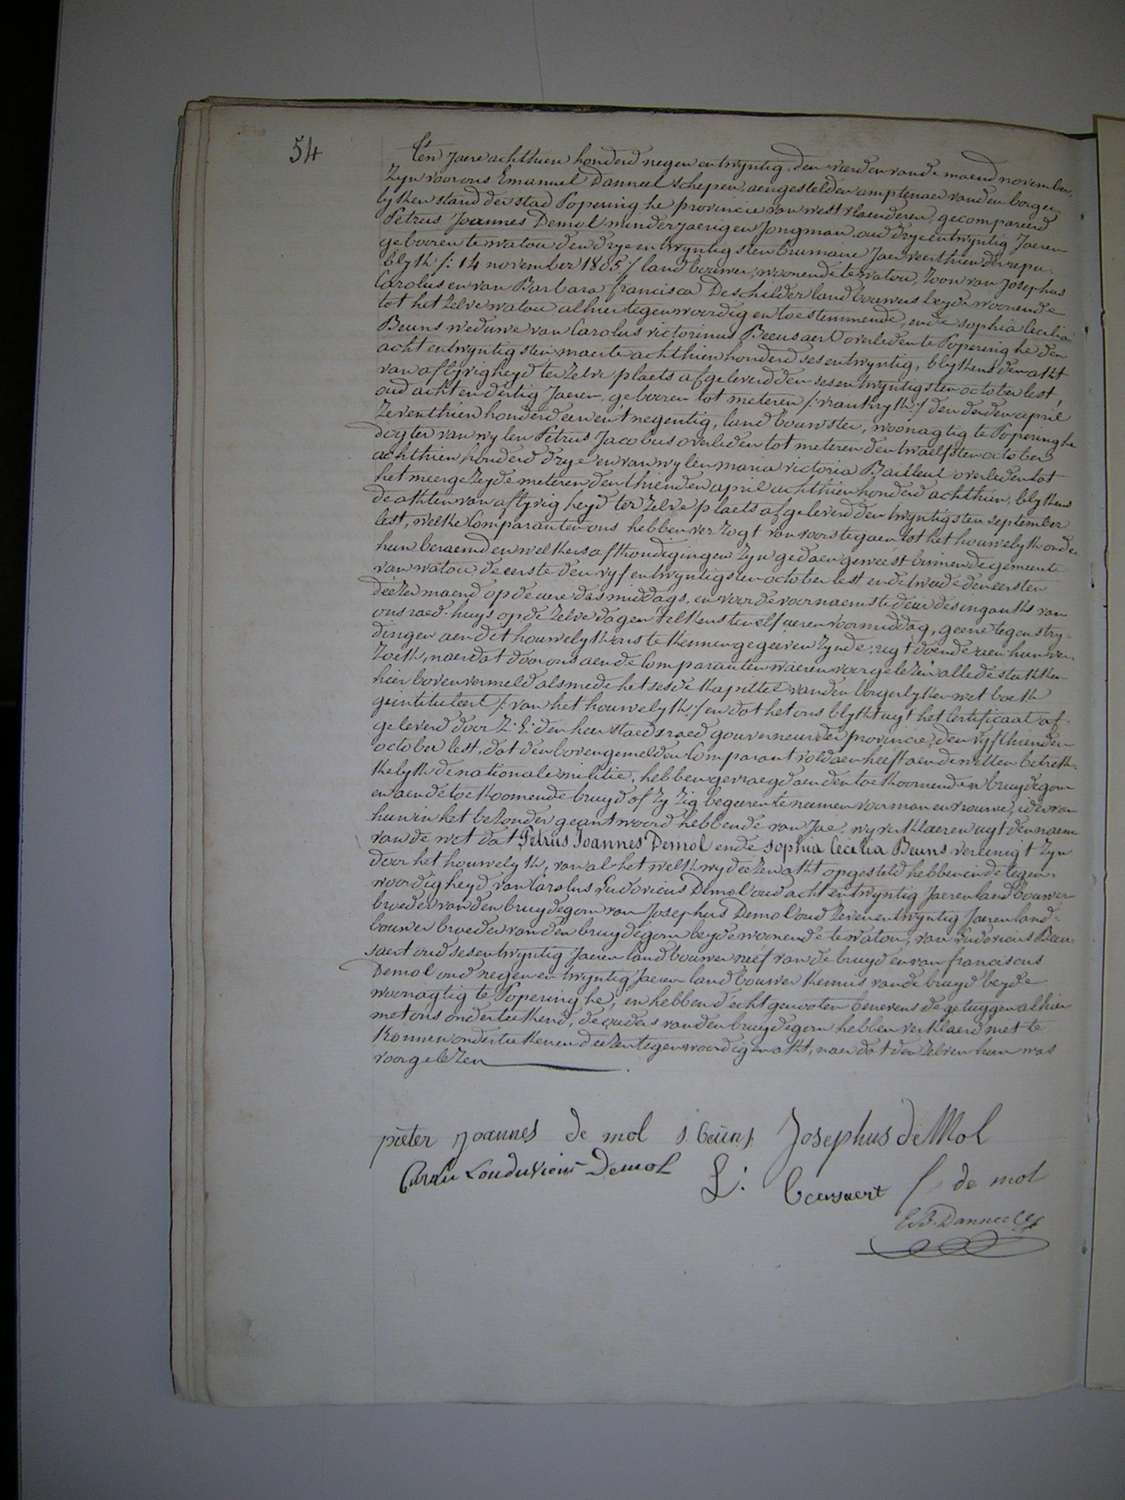 54
Ten Jaere achthien honderd negen en twyntig, den vierden vande maend november,
Zyn voor ons Emanuel Danneel schepen, aengestelden amptenaer van den borger-
lyken stand der stad Poperinghe provincie van west vlaenderen, gecompareerd
Petrus Joannes Demol minderjaerigen Jongman, oud drye en twyntig Jaeren
gebooren te watou den drye en twyntigsten brumaire Jaer veerthien der repu-
blyk /: 14 november 1805 / landbouwer, woonende te watou, Zoon van Josephus
Carolus en van Barbara francisca Deschilder landbouwers beyde woonende
tot het Zelve watou alhier tegenwoordig en toestemmende, ende sophia Cecilia
Beuns weduwe van Carolus victorinus Beersaert overleden te Poperinghe den
acht en twyntigsten maerte achthien honderd ses en twyntig, blykens den akt
van aflyvigheyd ter Zelve plaets afgeleverd den ses en twyntigsten october lest
oud acht en dertig Jaeren, gebooren tot meteren /: vrankryk / den derden april
Zeventhien honderd een en t negentig, landbouwster, woonagtig te Poperinghe
dogter van wylen Petrus Jacobus overleden tot meteren den twaelfsten october
achthien honderd drye en van wylen maria victoria Bailleul overleden tot
het meergezeyde meteren den thienden april achthien honderd achthien, blykens
de akten van aflyvigheyd ter Zelve plaets afgeleverd den twyntigsten september
lest, welke Comparanten ons hebben verzogt van voorstegaen tot het houwelyk onder
hun beraemd en welkers afkondigingen Zyn gedaen geweest binnen de gemeente
van watou de eerste den vyf en twyntigsten october lest en de tweede den eersten
deezer maend op de eure das middags, en voor de voornaemste deur des ingangks van
ons raed-huys op de Zelve dagen telkens ten elf ueren voormiddag, geene tegenstry-
dingen aen dit houwelyk ons te kennen gegeeven Zynde, regt doende aen hun ver-
Zoek, naer dat door ons aen de Comparanten waeren voorgelezen alle de stukken
hier boven vermeld alsmede het sesde kapittel van den borgerlyken wet boek
geintituleert /: van het houwelyk / en dat het ons blykt uyt het Certificaat af-
geleverd door Z: E: den heer staedsraed gouverneur der provincie, den vyfthienden
october lest, dat den boven gemelden Comparant voldaen heeft aen de wetten betrek-
kelyk de nationale militie, hebben gevraegd aen den toekoomenden bruydegom
en aen de toekoomende bruyd of Zy Zig begeeren te neemen voor man en vrouwe, ider van
hun in het bezonder geantwoord hebbende van Jae, wy verklaeren uyt den naem
van de wet dat Petrus Joannes Demol ende sophia Cecilia Beuns vereenigt Zyn
door het houwelyk, van al het welk wy deezen akt opgesteld hebben in de tegen-
woordigheyd van Carolus Ludovicus Demol oud acht en twyntig Jaeren landbouwer
broeder van den bruydegom van Josephus Demol oud Zeven en twyntig Jaeren land-
bouwer broeder van den bruydegom beyde woonende te watou, van Ludovicus Beer-
saert oud ses en twyntig Jaeren landbouwer neef van de bruyd en van franciscus
Demol oud negen en twyntig Jaeren landbouwer kennis van de bruyd beyde
woonagtig te Poperinghe, en hebben d'echtgenooten benevens de getuygen alhier
met ons onderteekend, de ouders van den bruydegom hebben verklaerd niet te
konnen onderteekenen deezen tegenwoordigen akt, naer dat den Zelven hun was
voorgelezen
pieter Joannes de mol s beuns Josephus de Mol
Carolu Louduvicus Demol L: beersaert f de mol
E. J. Danneel